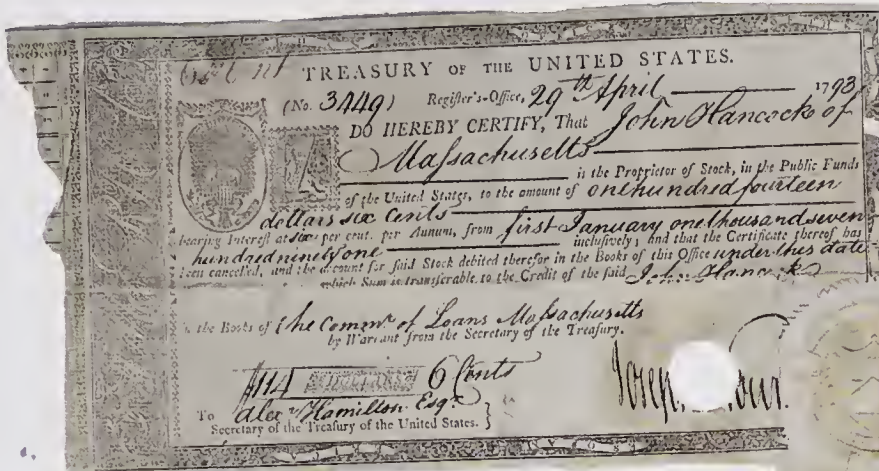 TREASURY OF THE UNITED STATES.
(No. 3449) Register's-Office, 29th April 1793
I DO HEREBY CERTIFY, That John Hancock of
Massachusetts
is the Proprietor of Stock, in the Public Funds
of the United States, to the amount of one hundred fourteen
dollars six Cents
bearing Interest at six per cent. per Annum, from first January one thousand seven
hundred ninety one inclusively; and that the Certificate thereof has
been cancelled, and the account for said Stock debited therefor in the Books of this Office under this date
which Sum is transferable to the Credit of the said John Hancock
the Books of the Commr. of Loans Massachusetts
by Warrant from the Secretary of the Treasury.
$114 DOLLARS 6 Cents
To Alexr. Hamilton Esqr.
Secretary of the Treasury of the United States.